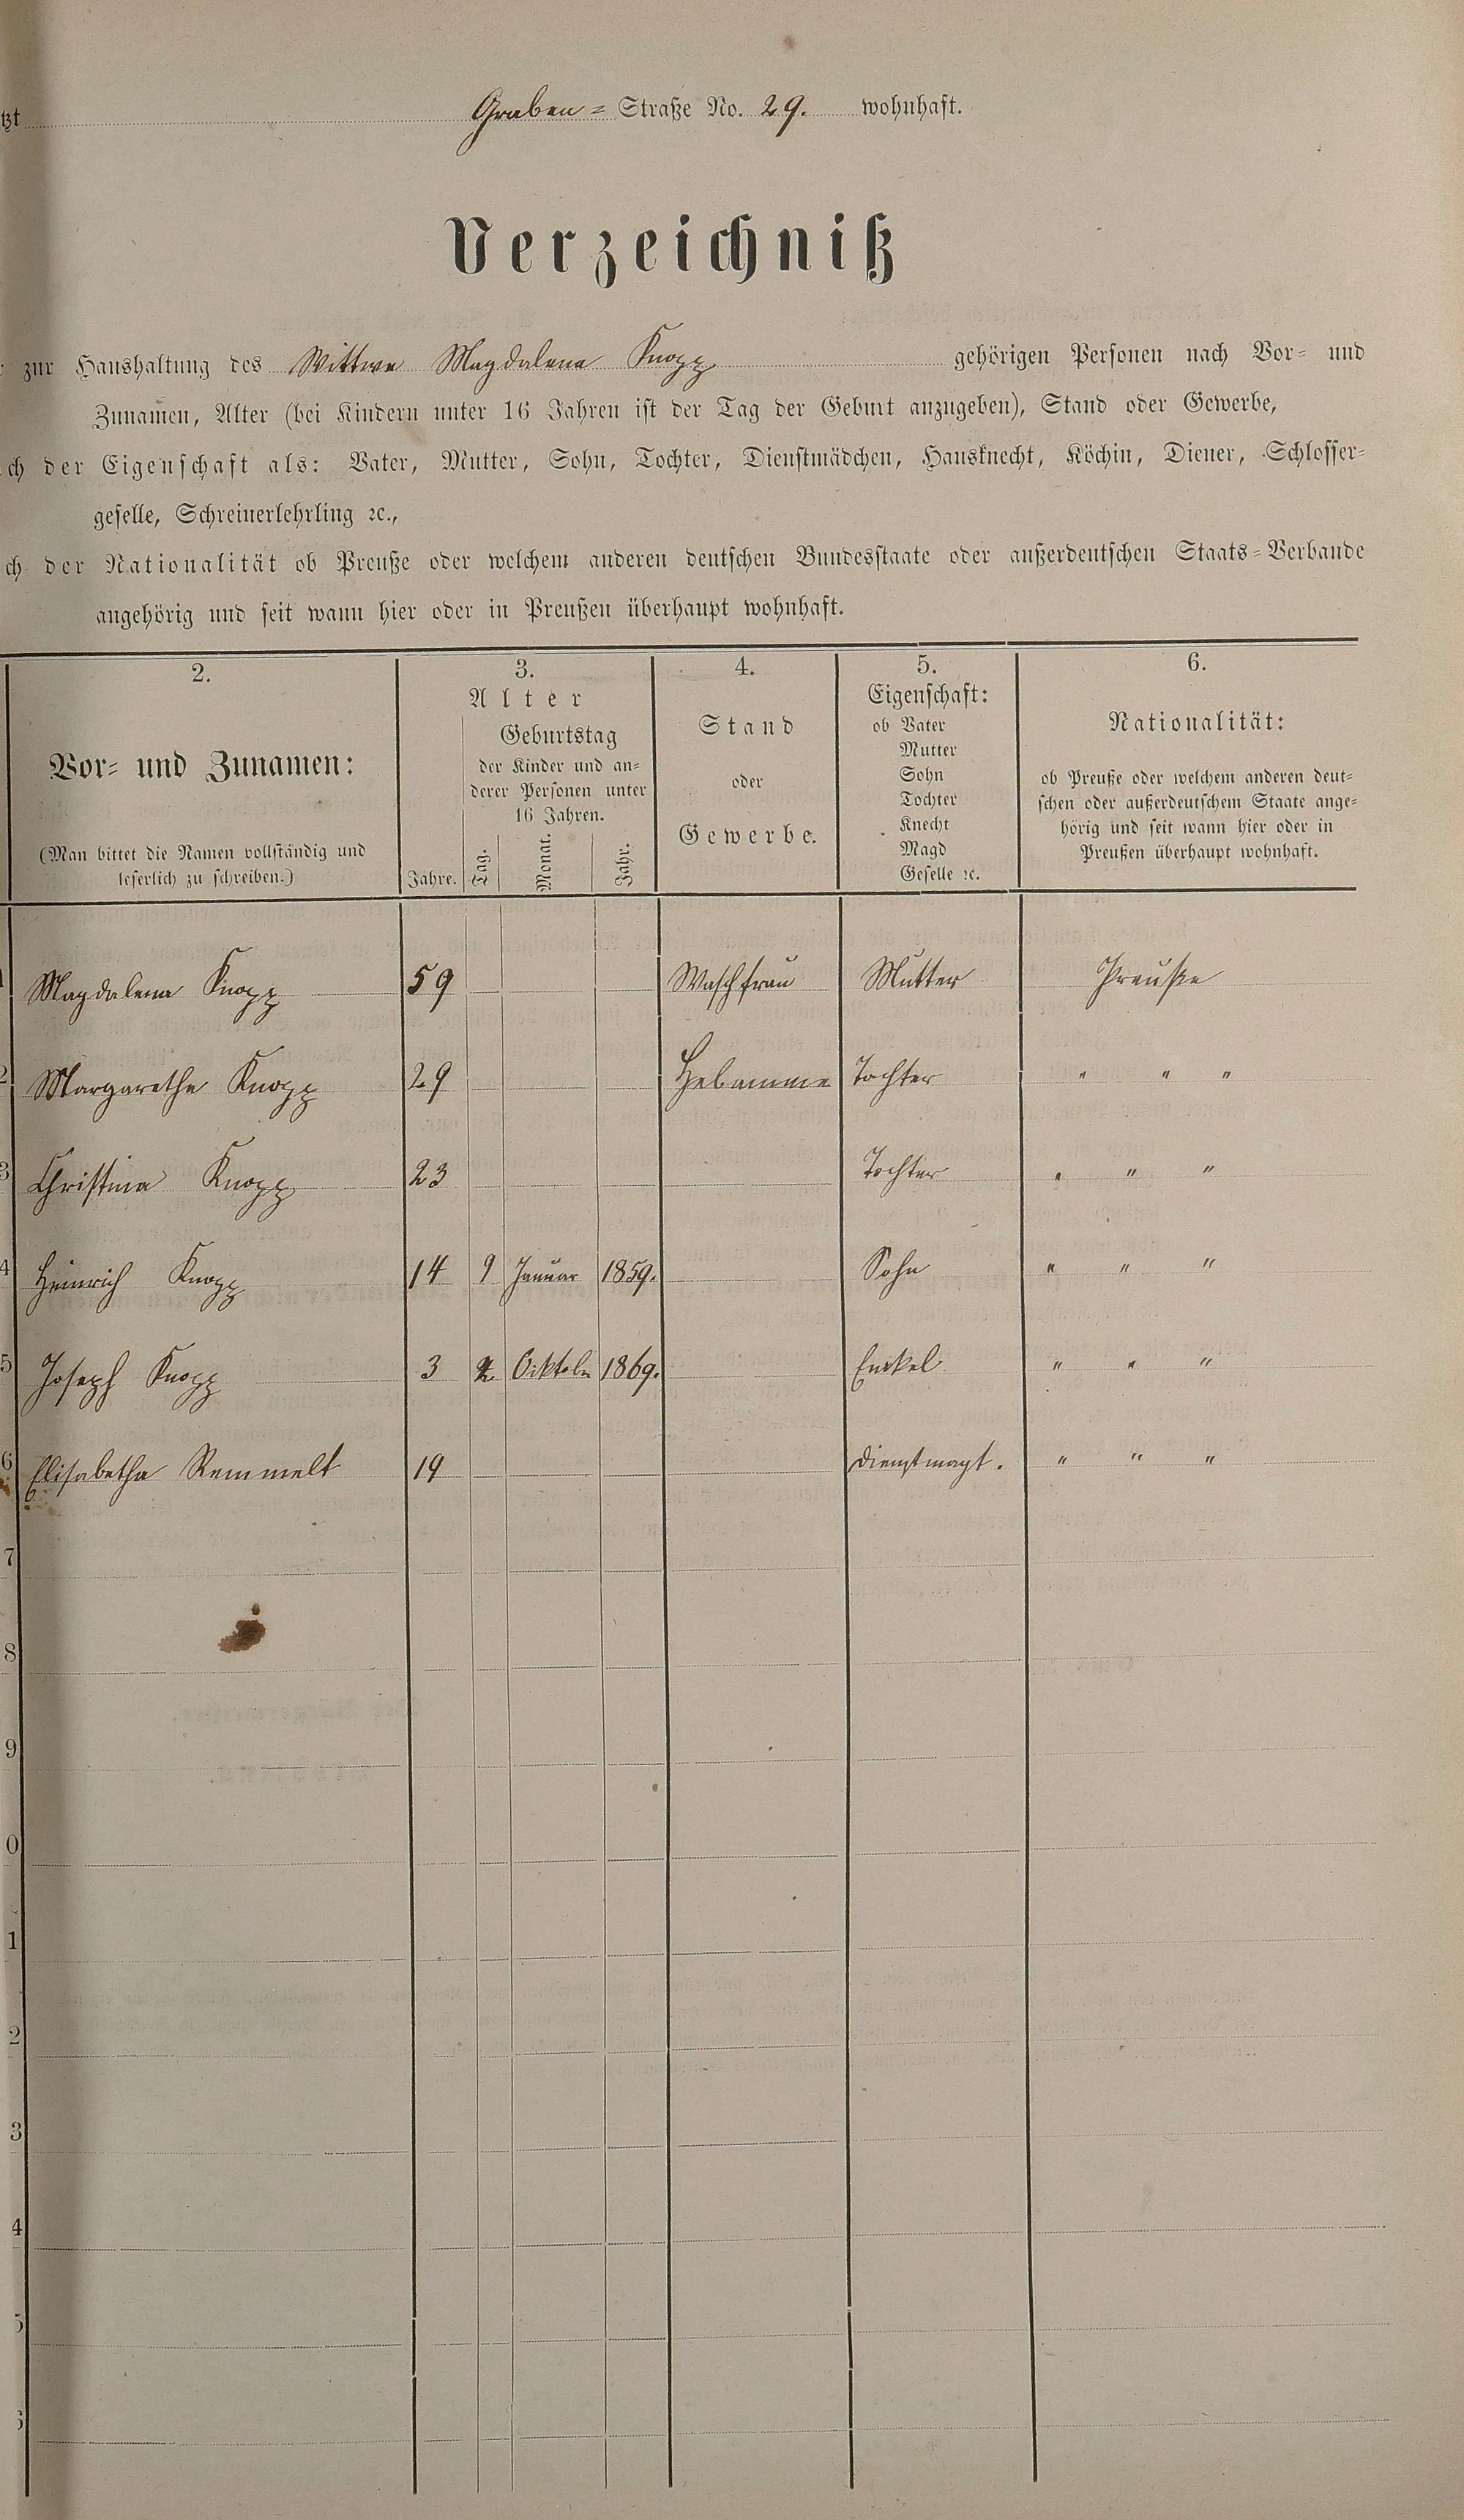 tzt Graben = Straße No. 29. wohnhaft.
Verzeichniß
zur Haushaltung des Wittwe Magdalena Knopp gehörigen Personen nach Vor= und
Zunamen, Alter (bei Kindern unter 16 Jahren ist der Tag der Geburt anzugeben), Stand oder Gewerbe,
ch der Eigenschaft als: Vater, Mutter, Sohn, Tochter, Dienstmädchen, Hausknecht, Köchin, Diener, Schlosser=
geselle, Schreinerlehrling ꝛc.,
ch der Nationalität ob Preuße oder welchem anderen deutschen Bundesstaate oder außerdeutschen Staats=Verbande
angehörig und seit wann hier oder in Preußen überhaupt wohnhaft.
2.
Vor= und Zunamen:
(Man bittet die Namen vollständig und
leserlich zu schreiben.)
3.
Alter
Geburtstag
der Kinder und an=
derer Personen unter
16 Jahren.
Jahre. Tag. Monat. Jahr.
4.
Stand
oder
Gewerbe.
5.
Eigenschaft:
ob Vater
Mutter
Sohn
Tochter
Knecht
Magd
Geselle ꝛc.
6.
Nationalität:
ob Preuße oder welchem anderen deut=
schen oder außerdeutschem Staate ange=
hörig und seit wann hier oder in
Preußen überhaupt wohnhaft.
Magdalena Knopp 59 Waschfrau Mutter Preuße
2 Margaretha Knopp 29 Hebamme Tochter " " "
3 Christina Knopp 23 Tochter " " "
4 Heinrich Knopp 14 9 Januar 1859. Sohn " " "
5 Joseph Knopp 3 Oktober 1869. Enkel " " "
6 Elisabetha Remmelt 19 Dienstmagt. " " "
7
8
9
0
1
2
3
4
5
6